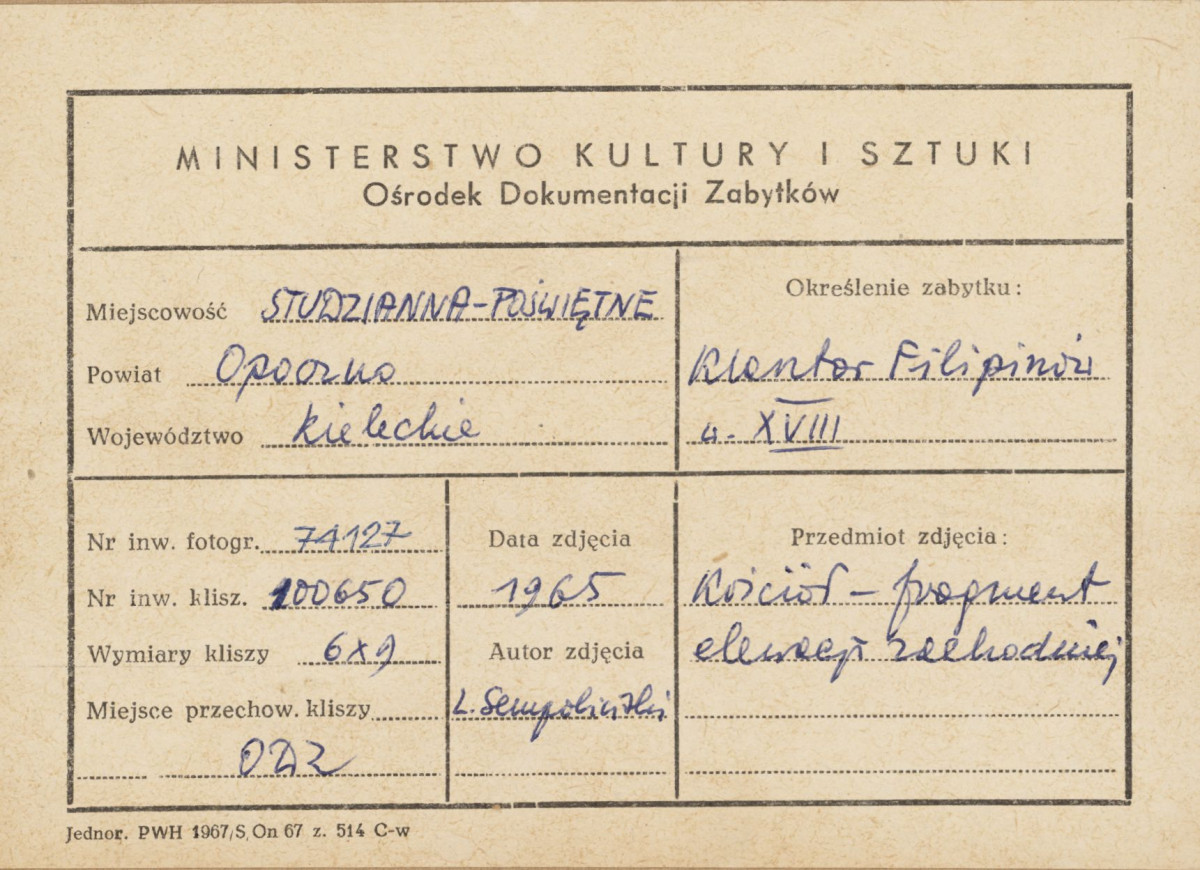 MINISTERSTWO KULTURY I SZTUKI
Ośrodek Dokumentacji Zabytków
Miejscowość STUDZIANNA-POŚWIĘTNE
Powiat Opoczno
Województwo kieleckie
Określenie zabytku:
Klasztor Filipinów
w. XVIII
Nr inw. fotogr. 74127
Nr inw. klisz. 100650
Wymiary kliszy 6x9
Miejsce przechow. kliszy
ODZ
Data zdjęcia
1965
Autor zdjęcia
Ł. Sempoliński
Przedmiot zdjęcia:
Kościół – fragment
elewacji zachodniej
Jednor. PWH 1967/S. On 67 z. 514 C-w